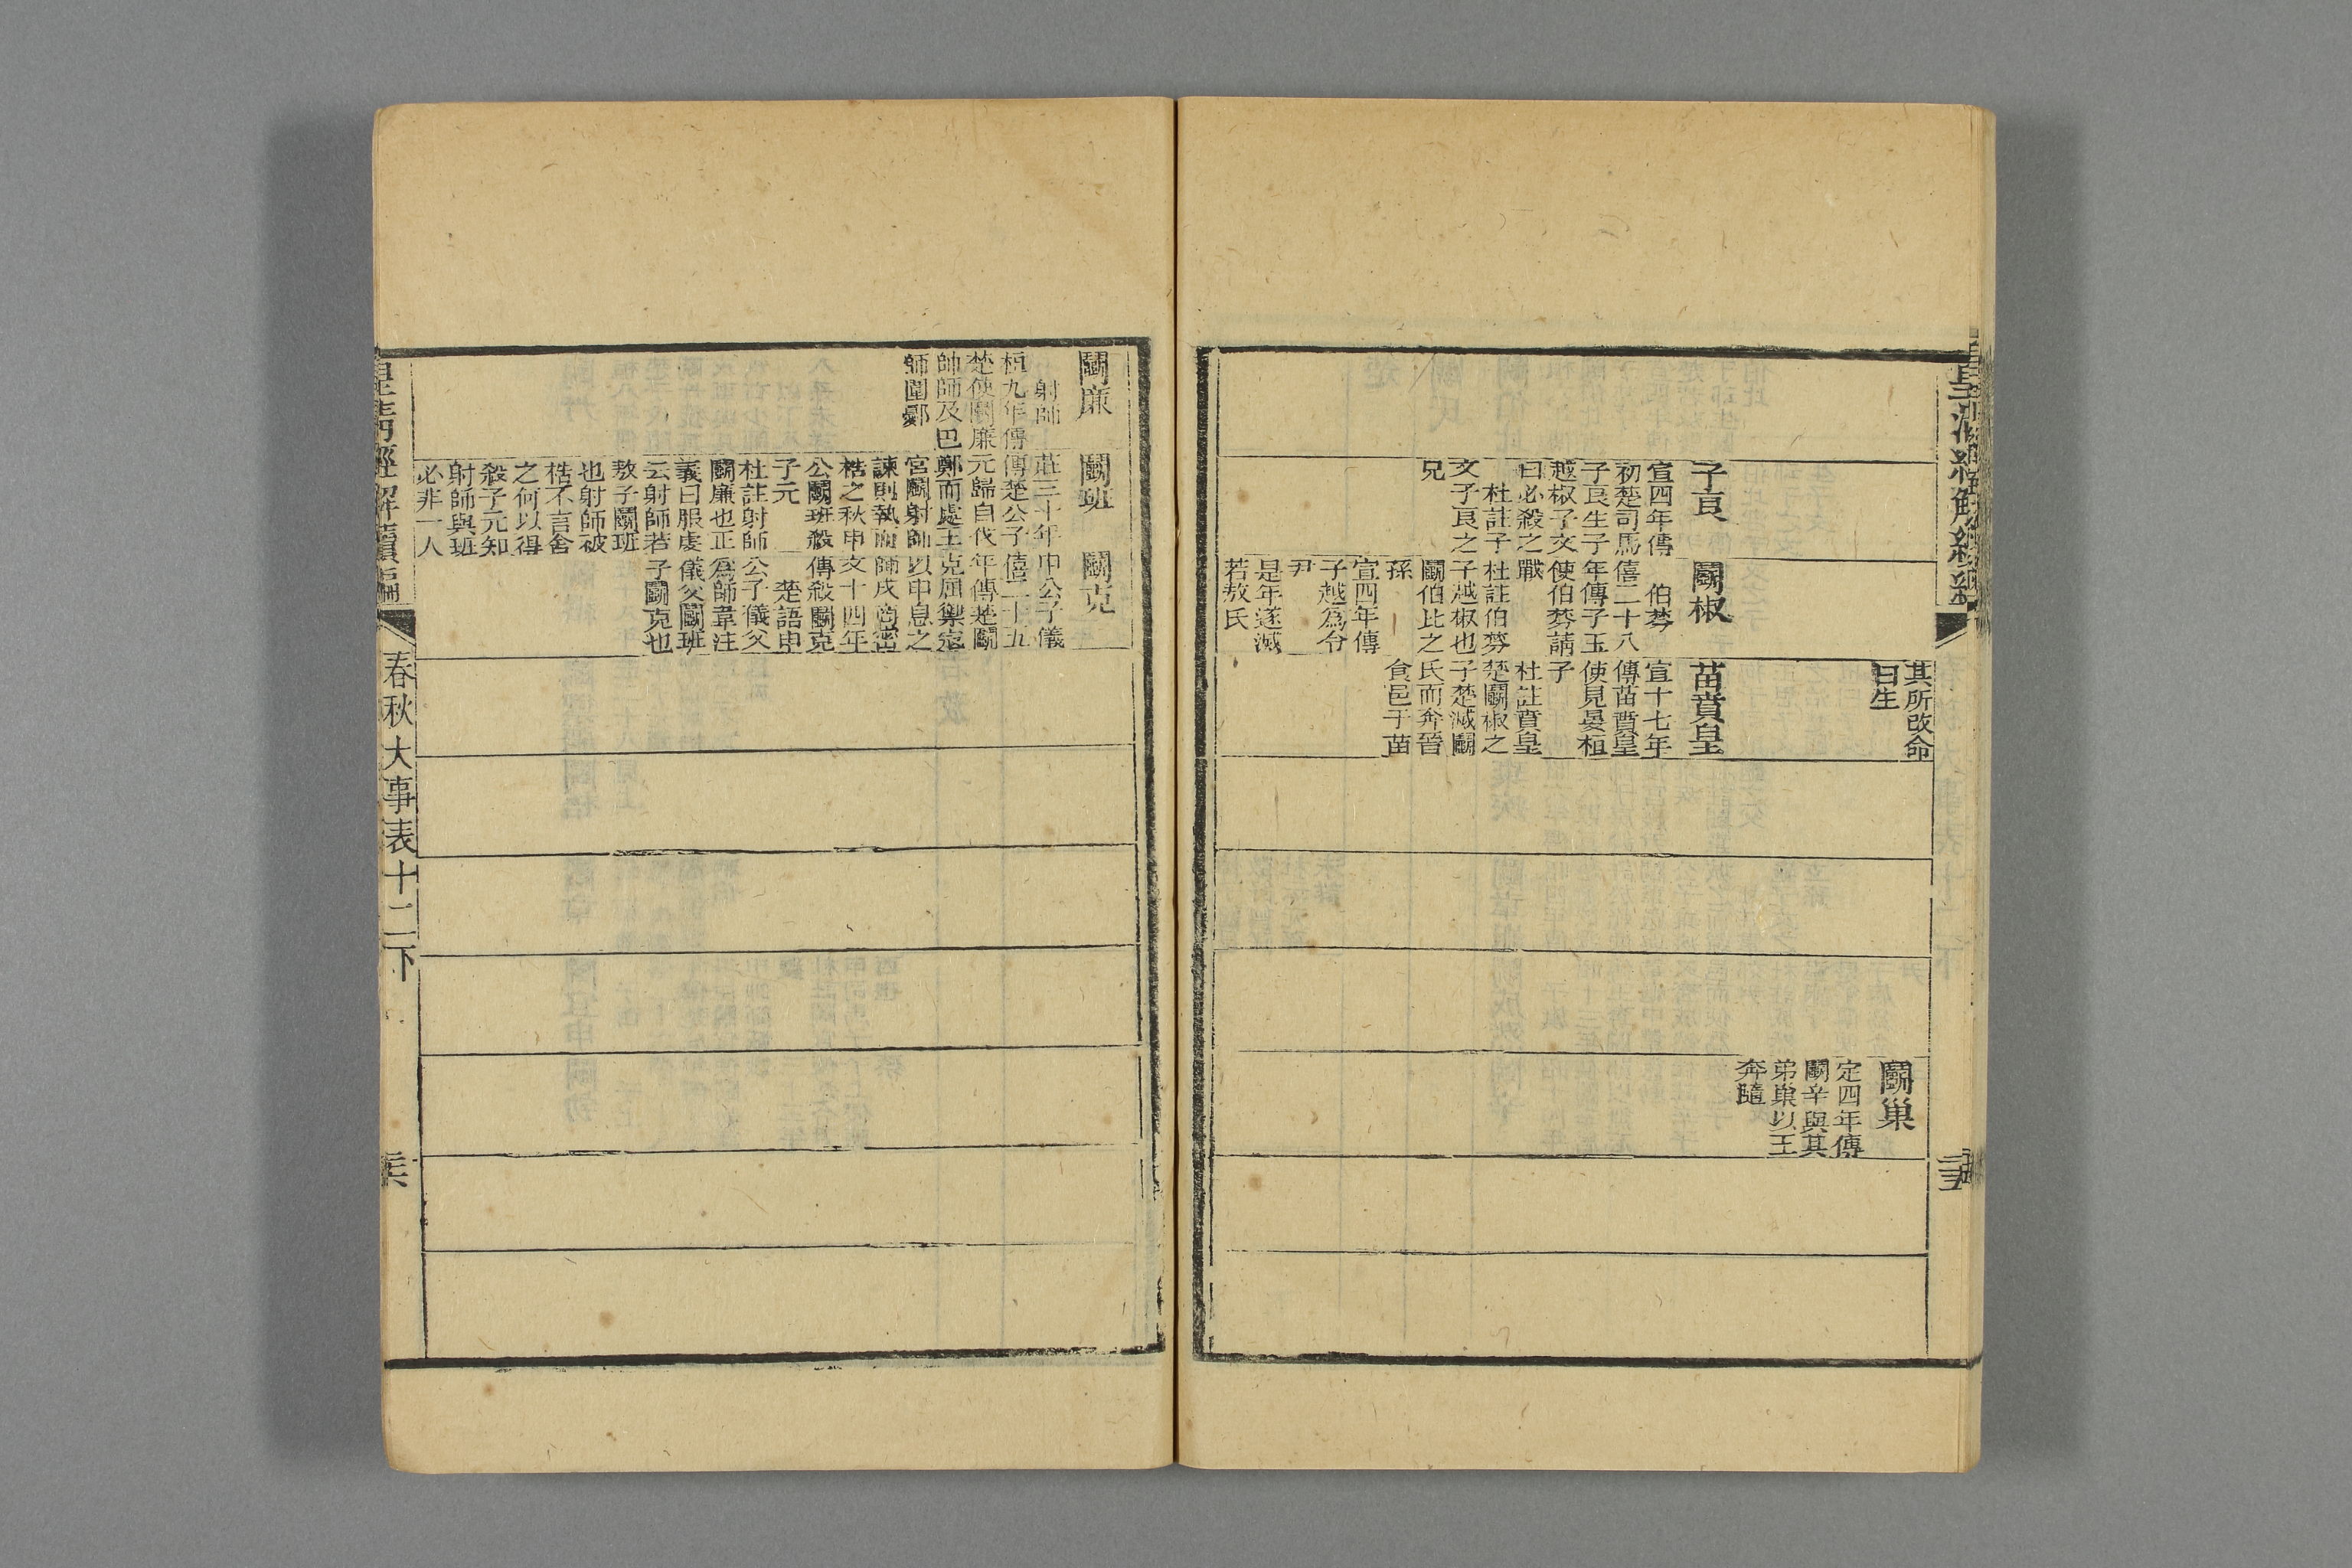 其所改命
曰生
鬭巢
定四年傳
鬭辛與其
弟巢以王
奔隨
子良
宣四年傳
初楚司馬
子良生子
越椒子文
曰必殺之
杜註子
文子良之
兄
鬭椒
伯棼
僖二十八
年傳子玉
使伯棼請
戰
杜註伯棼
子越椒也
鬭伯比之
孫
宣四年傳
子越爲令
尹
是年遂滅
若敖氏
苗賁皇
宣十七年
傳苗賁皇
使見晏桓
子
杜註賁皇
楚鬭椒之
子楚滅鬭
氏而奔晉
食邑于苗
鬭廉
射師
桓九年傳
楚使鬭廉
帥師及巴
師圍鄾
鬭班
莊三十年
傳楚公子
元歸自伐
鄭而處王
宮鬭射師
諫則執而
梏之秋申
公鬭班殺
子元
杜註射師
鬭廉也正
義曰服虔
云射師若
敖子鬭班
也射師被
梏不言舍
之何以得
殺子元知
射師與班
必非一人
鬭克
申公子儀
僖二十五
年傳楚鬭
克屈禦寇
以申息之
師戍商密
文十四年
傳殺鬭克
楚語申
公子儀父
爲師韋注
儀父鬭班
子鬭克也
皇清經解續編
春秋大事表十二下